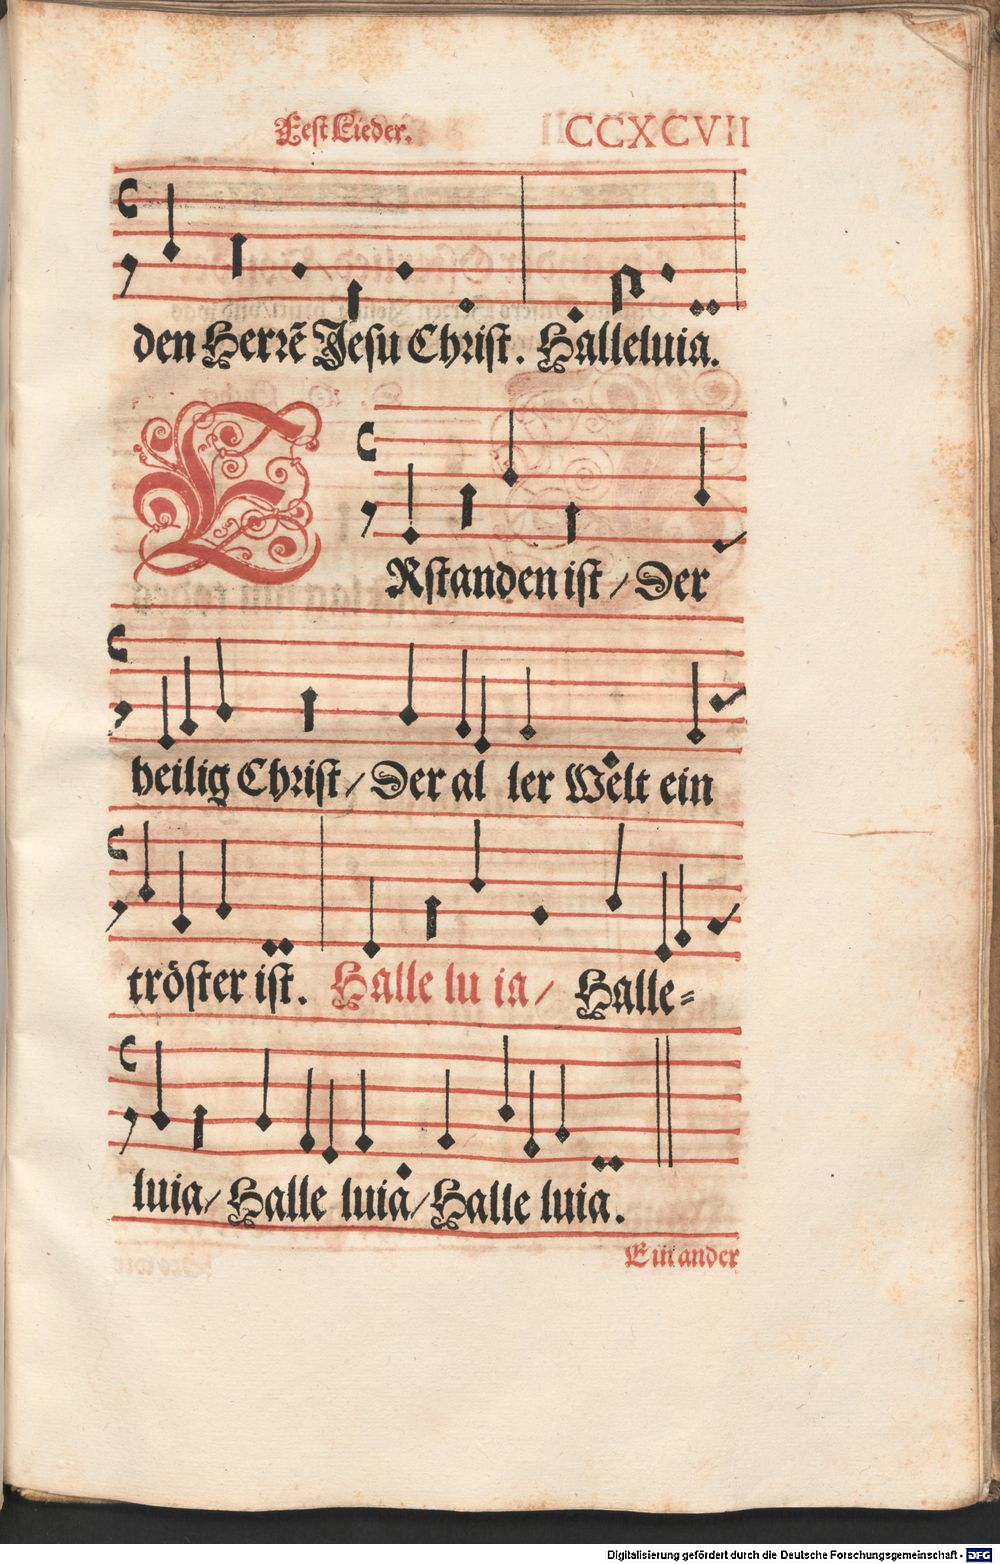 Fest Lieder. CCXCVII
den Herrẽ Jesu Christ. Halleluia.
ERstanden ist / Der
heilig Christ / Der al ler Welt ein
tröster ist. Halle lu ia / Halle=
luia / Halle luia / Halle luia.
Ein ander
Digitalisierung gefördert durch die Deutsche Forschungsgemeinschaft - DFG